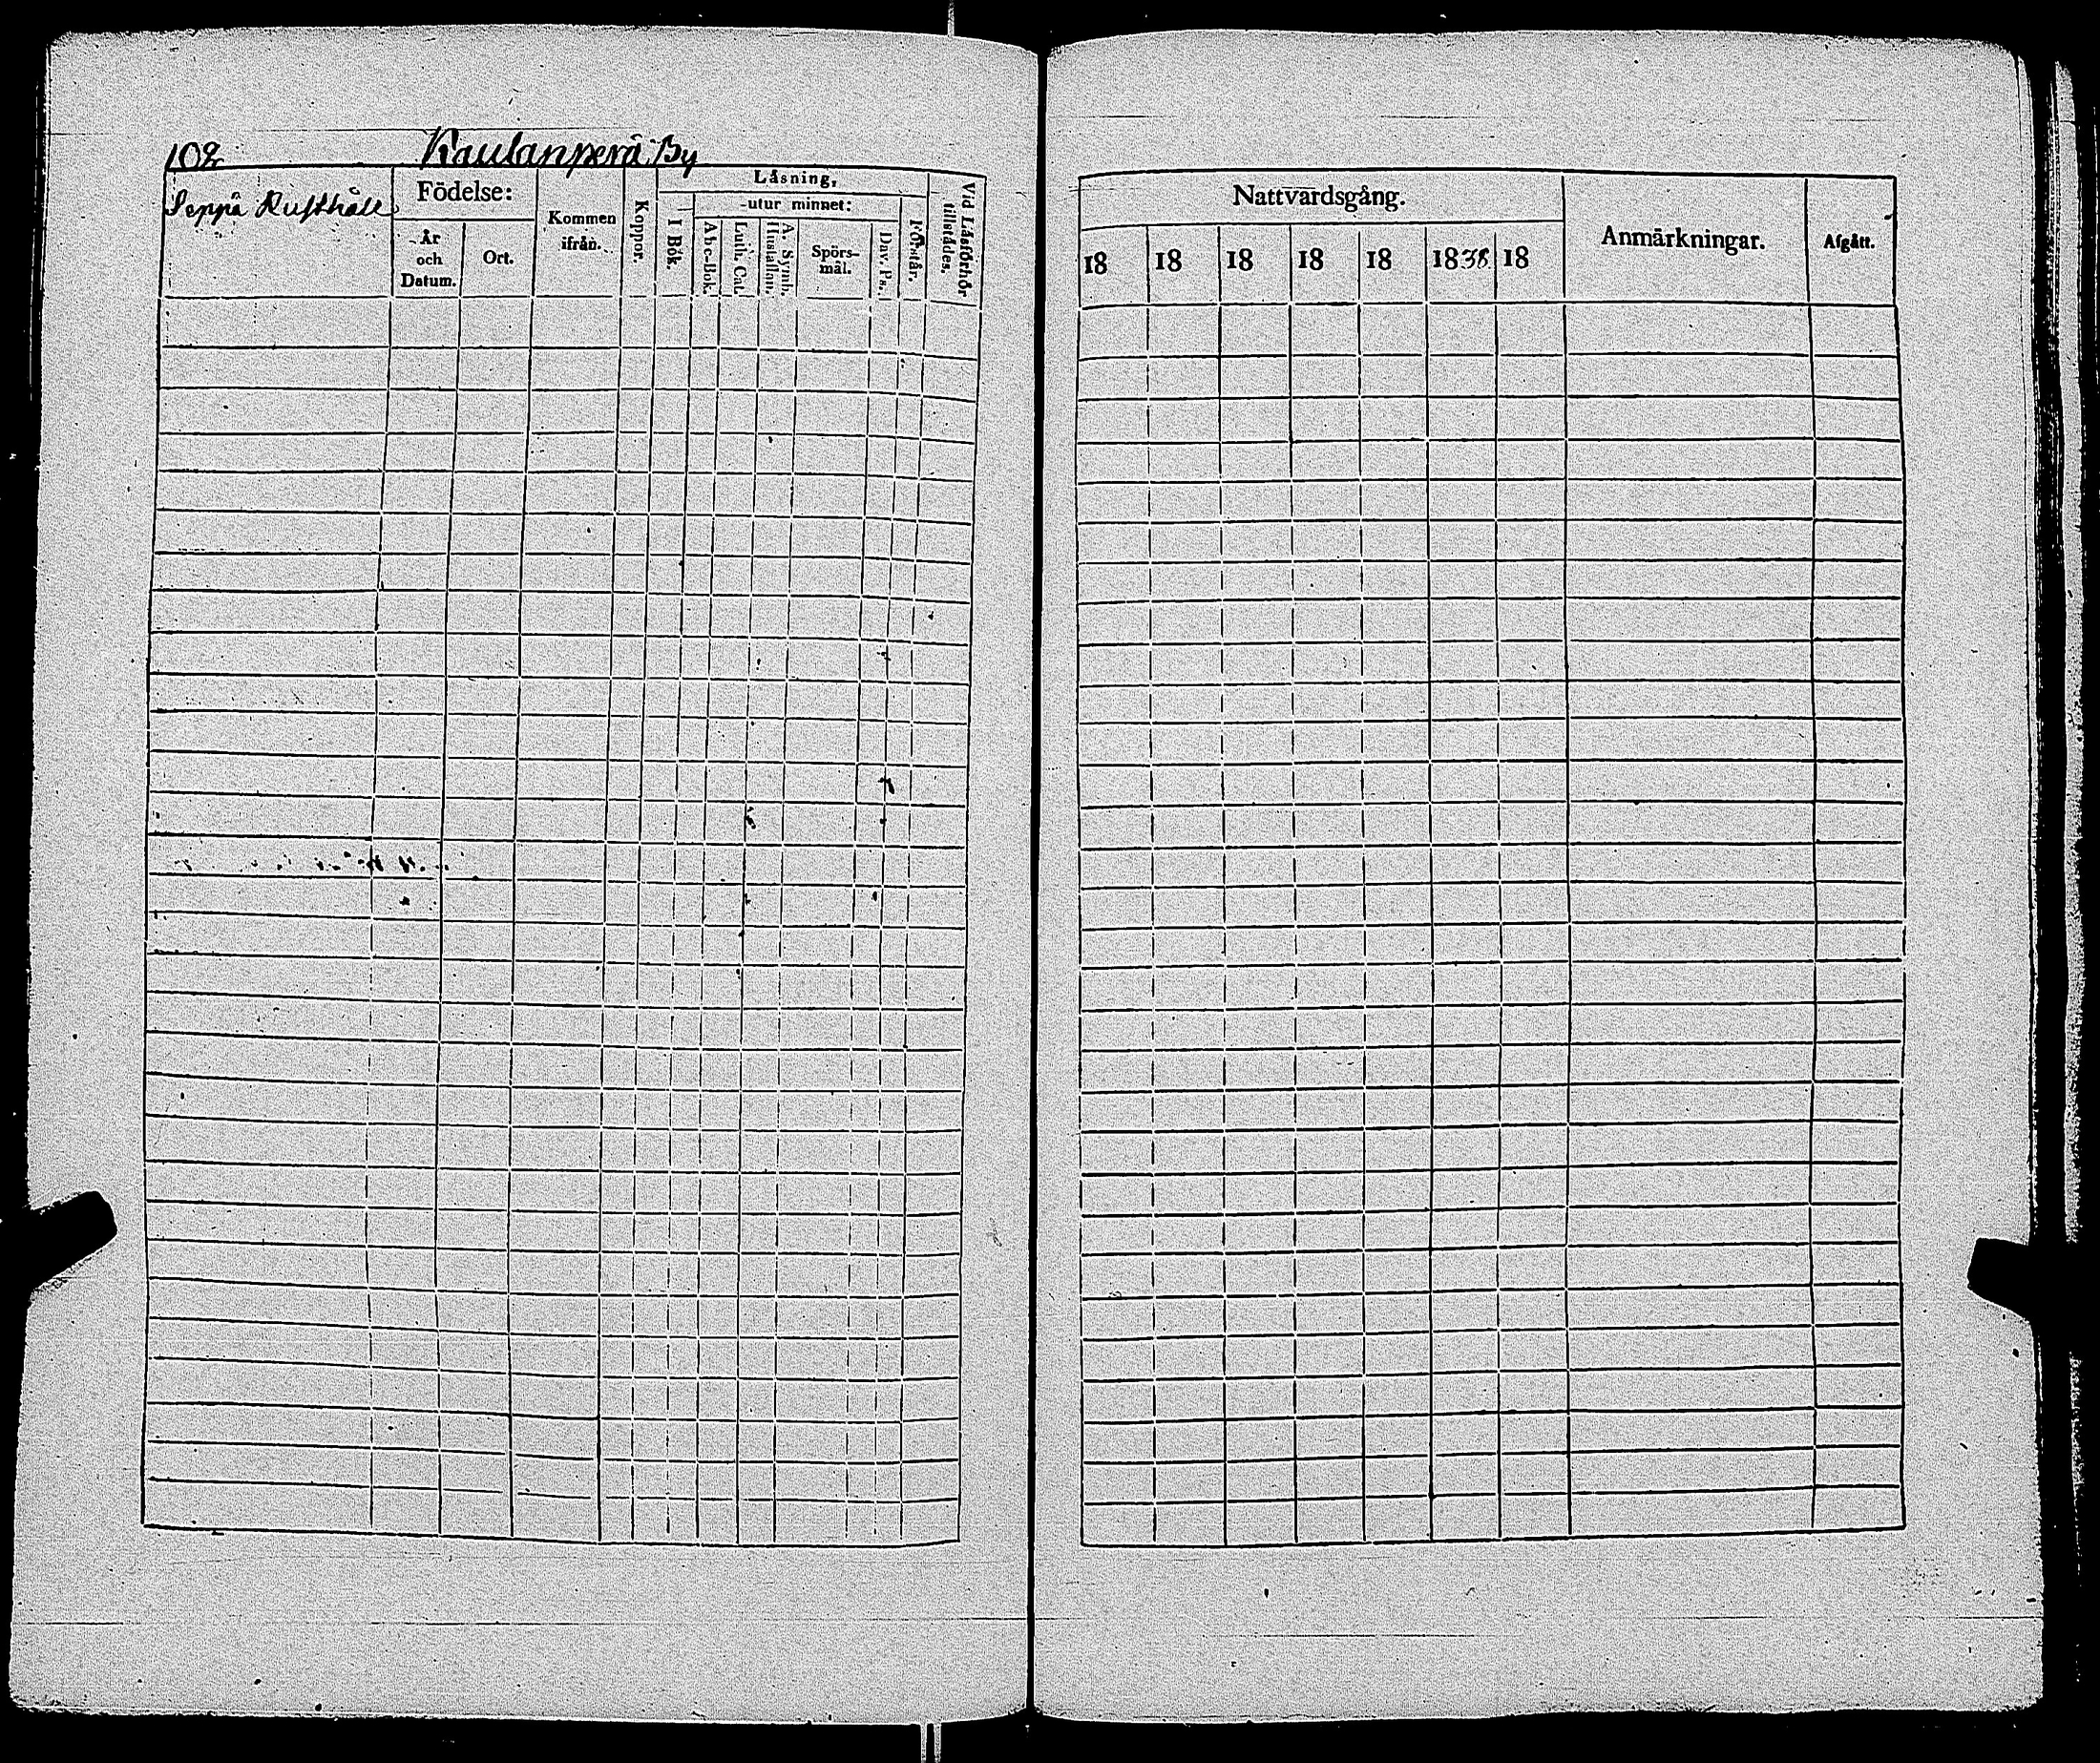 102 Kaulanperä By
Seppä Rusthåll
Födelse:
År och Datum.
Ort.
Kommen ifrån.
Koppor.
Låsning,
I Bok.
utur minnet:
Abc-Bok.
Luth. Cat.
Hustaflan.
A. Symb.
Spörs-
mål.
Dav. Ps.
Förstår.
Vid Låsförhör
tillstädes.
Nattvardsgång.
18 18 18 18 18 1838 18
Anmärkningar.
Afgått.